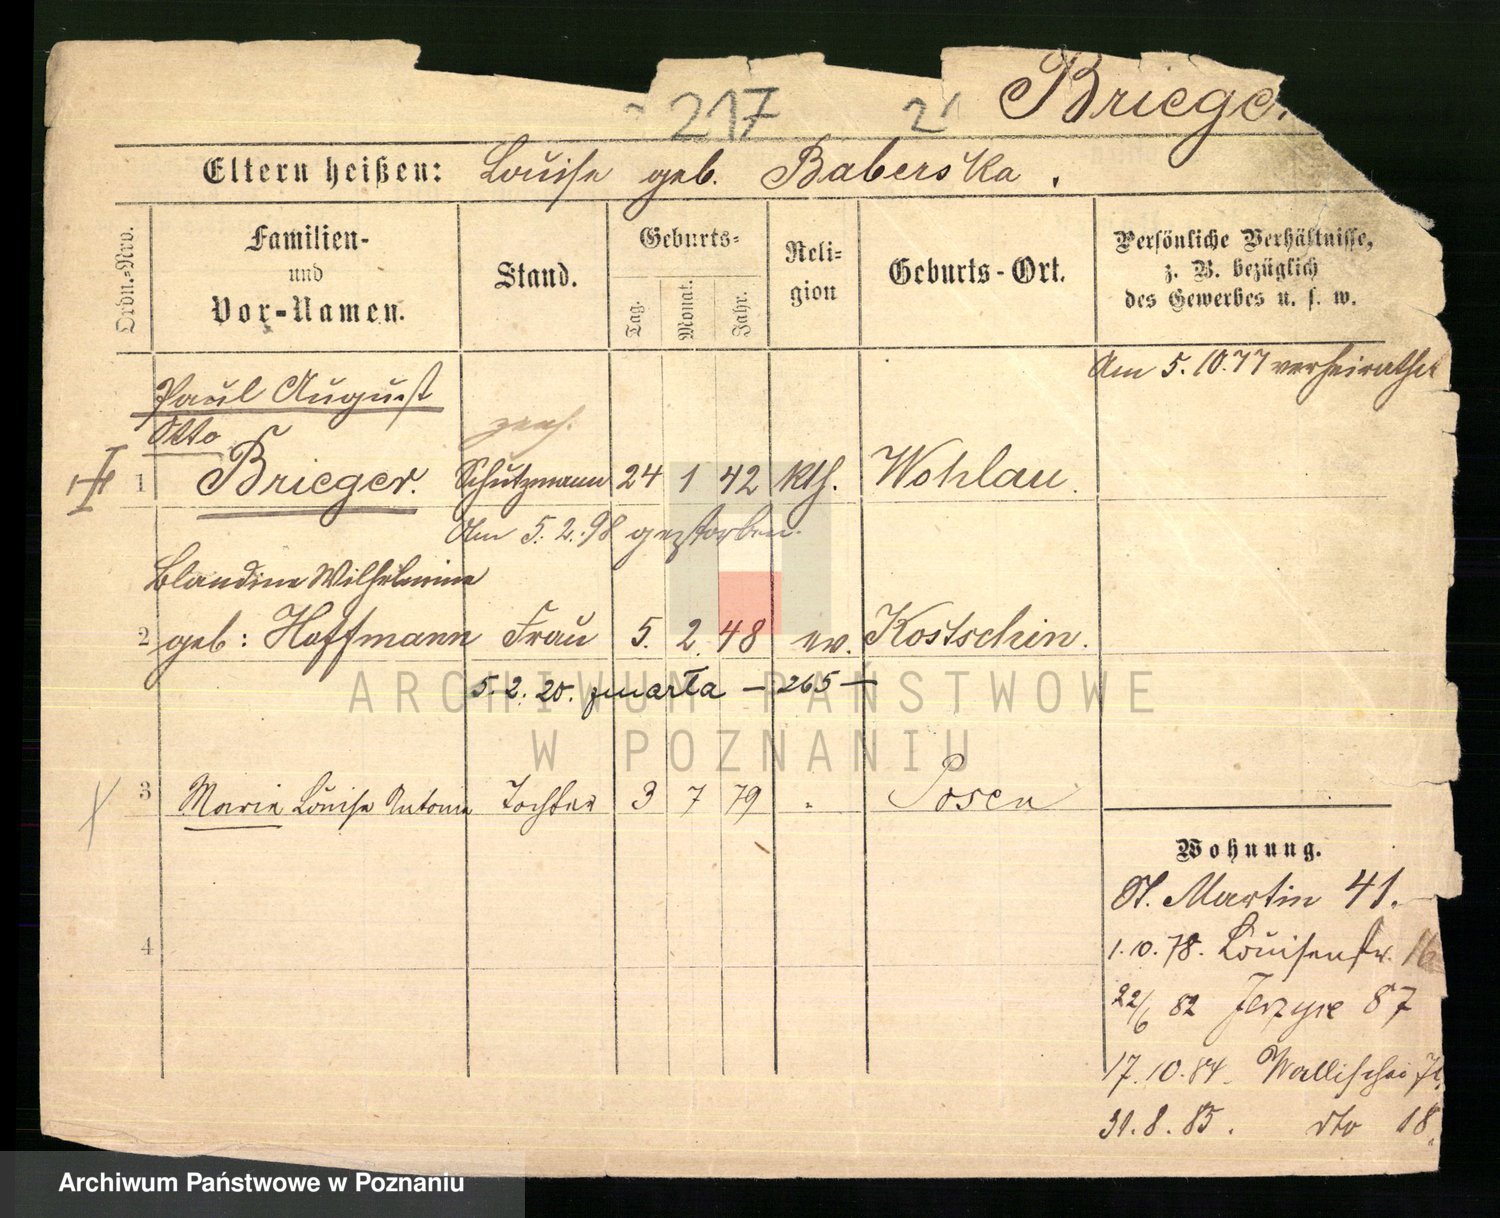 217 21 Brieger
Eltern heißen: Louise geb. Baberska.
Ordn.-Nro.
Familien-
und
Vor-Namen.
Stand.
Geburts-
Tag.
Monat.
Jahr.
Reli-
gion
Geburts-Ort.
Persönliche Verhältnisse,
z. B. bezüglich
des Gewerbes u. s. w.
Am 5.10.77 verheirathet
Paul August
Otto
1 Brieger. Schutzmann 24 1 42 kth. Wohlau.
Am 5.2.98 gestorben.
Blandine Wilhelmine
2 geb: Hoffmann Frau 5. 2. 48 ev. Kostschin.
5.2.20. zmarła — 265 —
3 Marie Louise Antonie Tochter 3 7 79 . Posen
4
Wohnung.
St. Martin 41.
1.10.78. Louisenstr. 16
22/6 82 Jerzyce 87
17.10.84. Wallischei
31.8.85. dto 18.
ARCHIWUM PAŃSTWOWE
W POZNANIU
Archiwum Państwowe w Poznaniu